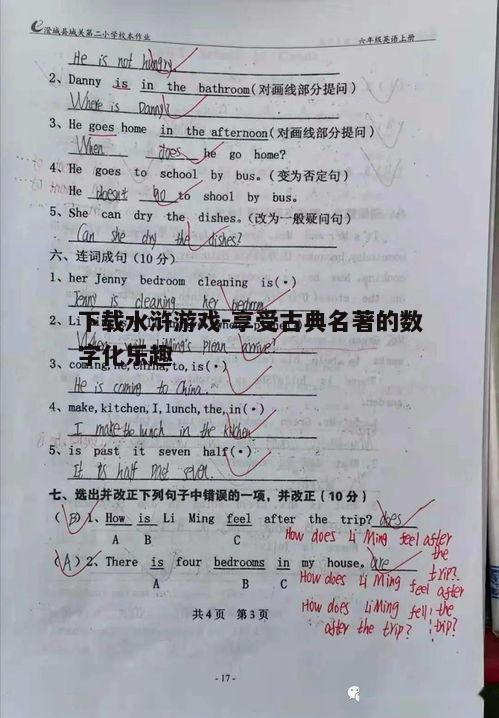 澄城县城关第二小学校本作业 六年级英语上册
He is not hungry
2、Danny is in the bathroom(对画线部分提问)
Where is Danny?
3、He goes home in the afternoon(对画线部分提问)
When does he go home?
4、He goes to school by bus。(变为否定句)
He doesn't go to shool by bus.
5、She can dry the dishes。(改为一般疑问句)
Can she dry the dishes?
六、连词成句(10分)
1、her Jenny bedroom cleaning is(·)
Jenny is cleaning her bedroom
下载水浒游戏-享受古典名著的数
2、Li
When will liMing's plean arrive?
字化乐趣
3、coming,he,china,to,is(·)
He is coming to China.
4、make,kitchen,I,lunch,the,in(·)
I make the lunch in the kitchen
5、is past it seven half(·)
It is half past seven.
七、选出并改正下列句子中错误的一项,并改正(10分)
(B)1、How is Li Ming feel after the trip? does
A B C
How does Li Ming feel after
the
trip?
(A)2、There is four bedrooms in my house。are
A B C
How does Li Ming feel after
the
How does LiMing fell
after the trip? trip?
共4页 第3页
-17-